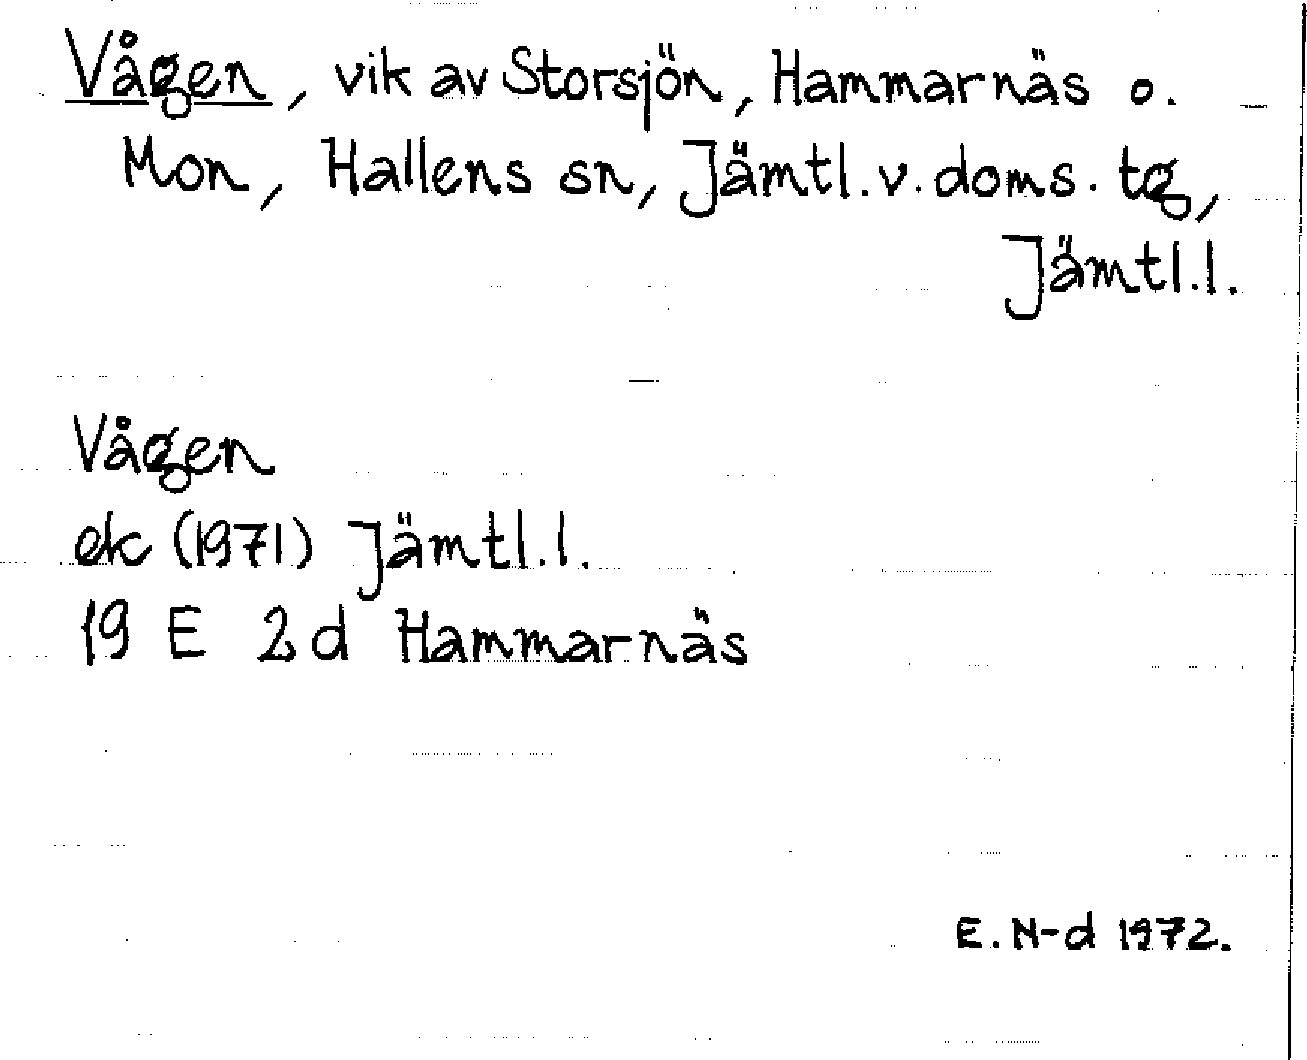 Vågen, vik av Storsjön, Hammarnäs o.
Mon, Hallens sn, Jämtl.v.doms.tg,
Jämtl.l.
Vågen
ek (1971) Jämtl.l.
19 E 2d Hammarnäs
E.N-d 1972.